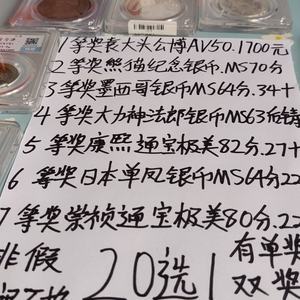 1等奖袁大头公博AV50.1700元
2等奖熊猫纪念银币.MS70分
3等奖墨西哥银币MS64分.34+
4等奖大力神法郎银币MS63后铸
5等奖康熙通宝极美82分.27+
6等奖日本单凤银币MS64分22
7等奖崇祯通宝极美80分.2
非假
20选1
有单奖
双奖